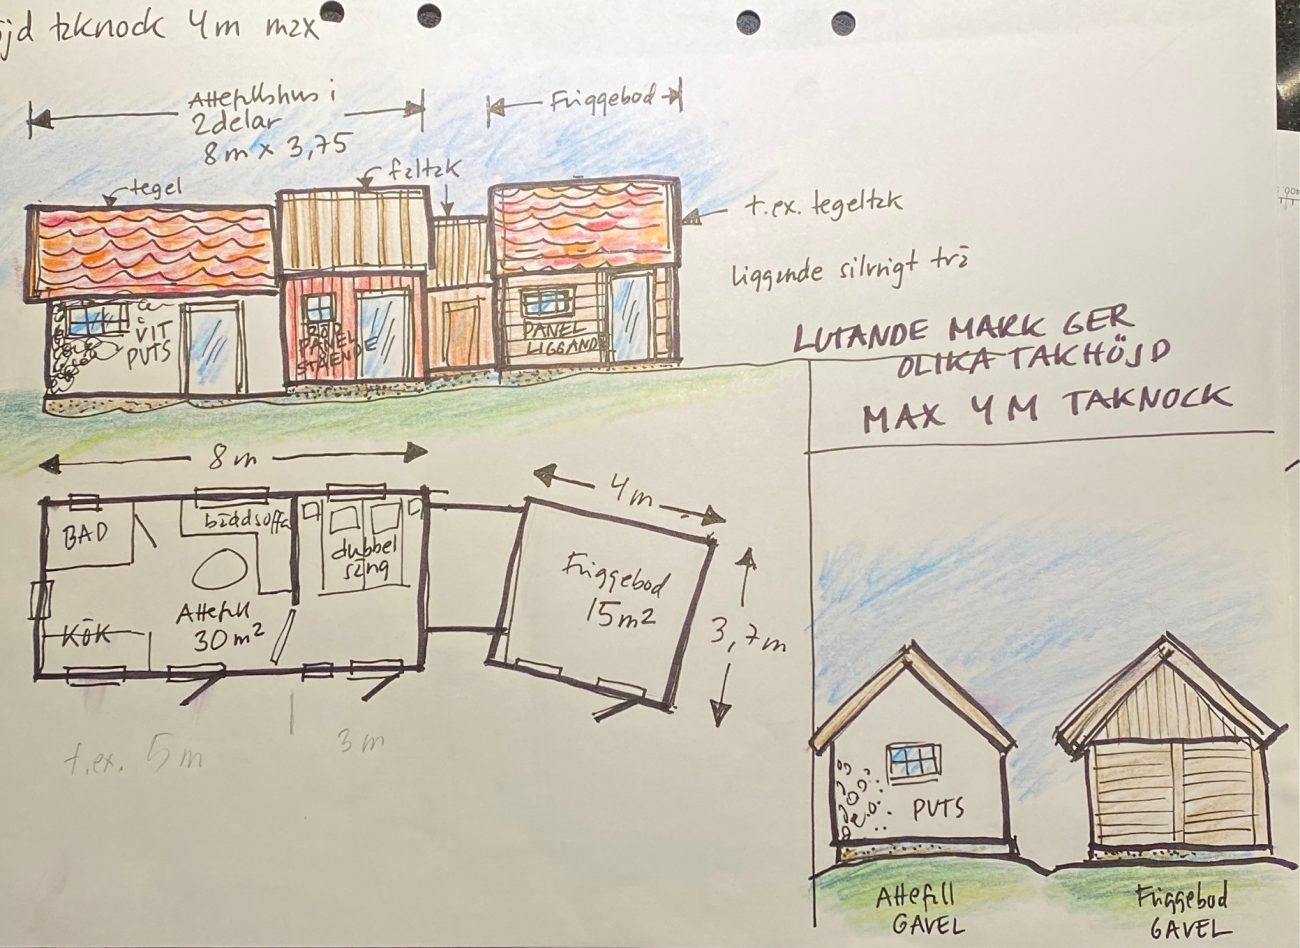 jd taknock 4m max
Attefallshus i
2delar
8m x 3,75
Friggebod
tegel
faltak
t.ex. tegeltak
liggande silvrigt trä
VIT
PUTS
RÖD
PANEL
STÅENDE
PANEL
LIGGANDE
LUTANDE MARK GER
OLIKA TAKHÖJD
MAX 4M TAKNOCK
8m
4m
BAD
bäddsoffa
dubbel
säng
Friggebod
15m²
Attefall
30m²
KÖK
3,7m
t.ex. 5m
3m
PUTS
Attefall
GAVEL
Friggebod
GAVEL